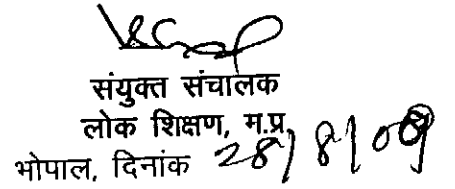 संयुक्त संचालक
लोक शिक्षण, म.प्र.
भोपाल, दिनांक 28/8/09